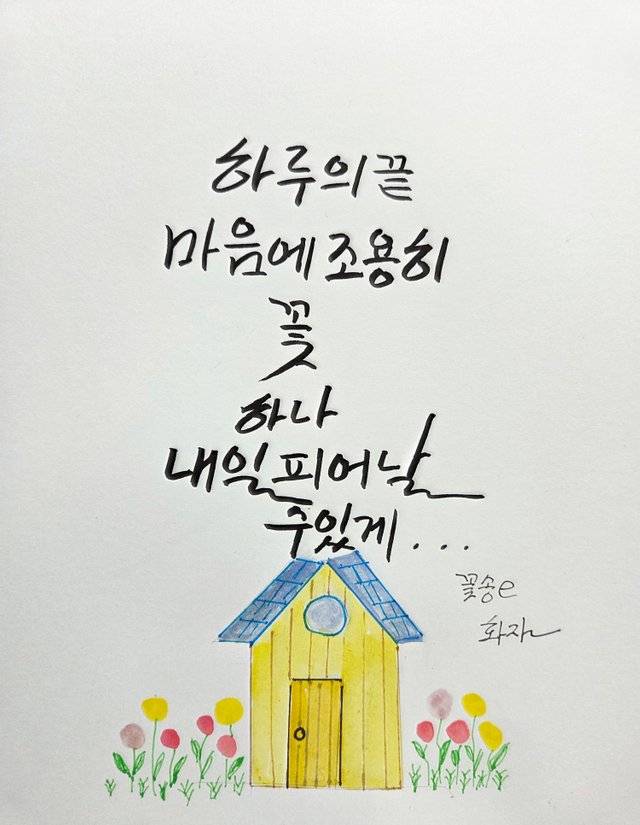 하루의 끝
마음에 조용히
꽃
하나
내일 피어날
수 있게...
꽃송e
화자